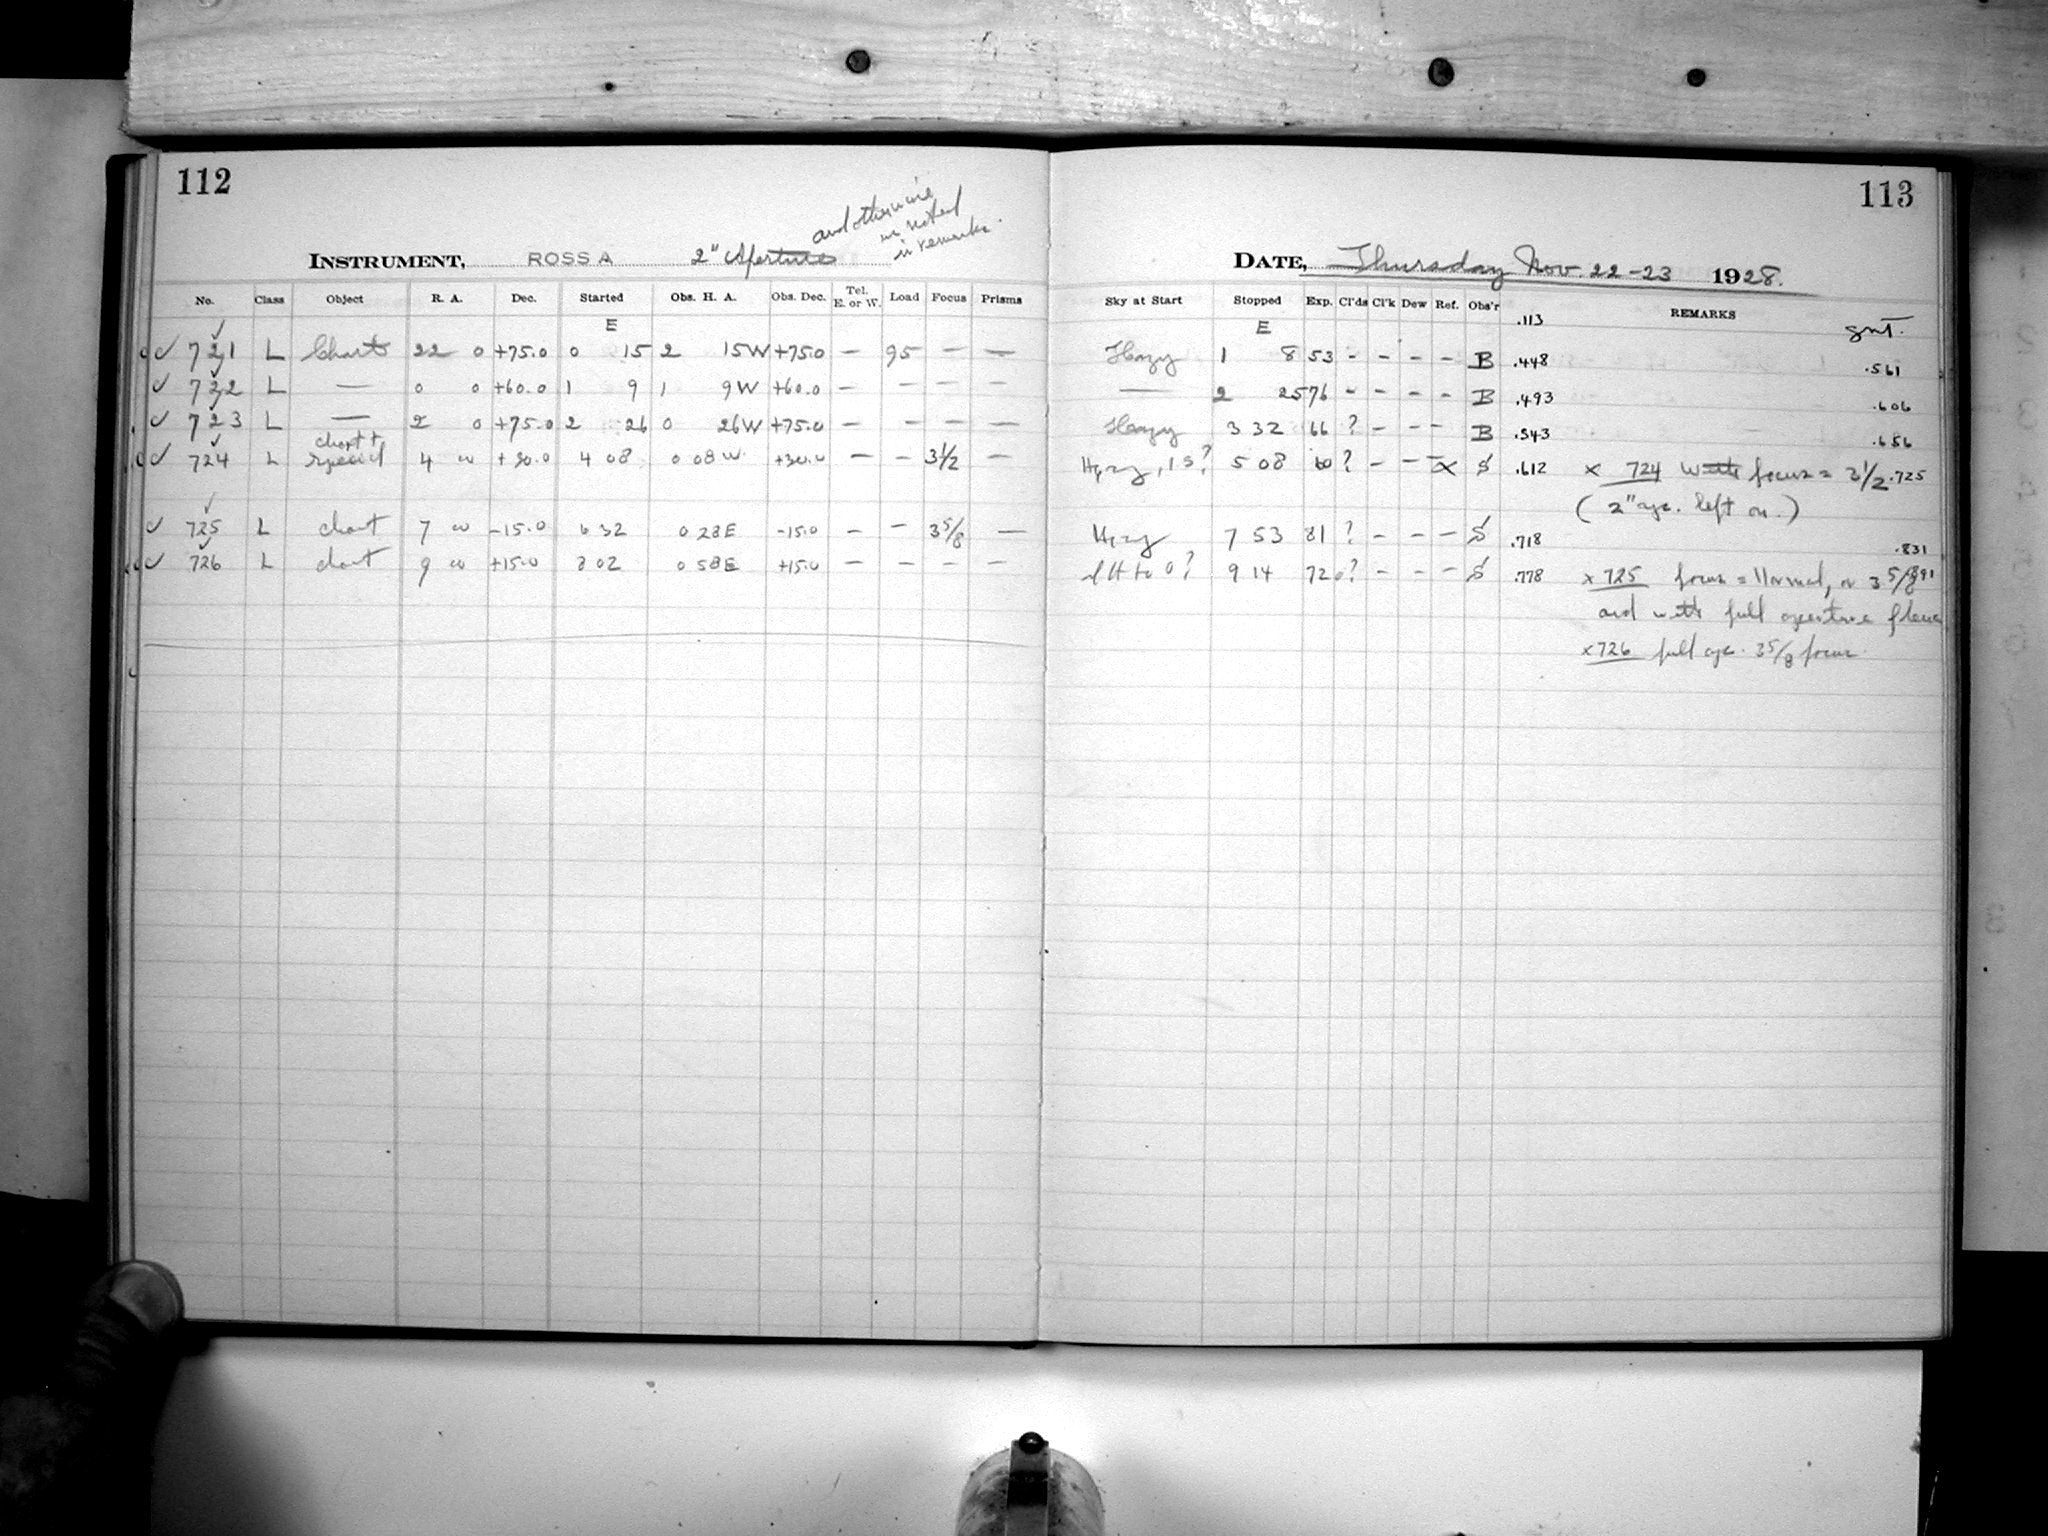 112
and otherwise
as noted
in remarks.
INSTRUMENT, ROSS A 2" Aperture
No. Class Object R. A. Dec. Started Obs. H. A. Obs. Dec. Tel. E. or W. Load Focus Prisms
E
✓ 721 L Charts 22 0 +75.0 0 15 2 15W +75.0 — 95 — —
✓ 722 L — 0 0 +60.0 1 9 1 9W +60.0 — — — —
✓ 723 L — 2 0 +75.0 2 26 0 26W +75.0 — — — —
✓ 724 L chart + special 4 00 +30.0 4 08 0 08W +30.0 — — 3½ —
✓ 725 L chart 7 00 -15.0 6 32 0 28E -15.0 — — 3⅝ —
✓ 726 L chart 9 00 +15.0 8 02 0 58E +15.0 — — — —
113
DATE, Thursday Nov 22-23 1928.
Sky at Start Stopped Exp. Cl'ds Cl'k Dew Ref. Obs'r .113 REMARKS gmt.
E
Hazy 1 8 53 - - - - B .448 .561
— 2 25 76 - - - - B .493 .606
Hazy 3 32 66 ? - - - B .543 .656
Hazy, 15? 5 08 60 ? - - - x S .612 x 724 with focus = 3½ .725
(2" ap. left on.)
Hazy 7 53 81 ? - - - S .718 .831
to 0? 9 14 72 0? - - - S .778 x 725 focus = Normal, or 3⅝ .891
and with full aperture
x 726 full ap. 3⅝ focus.